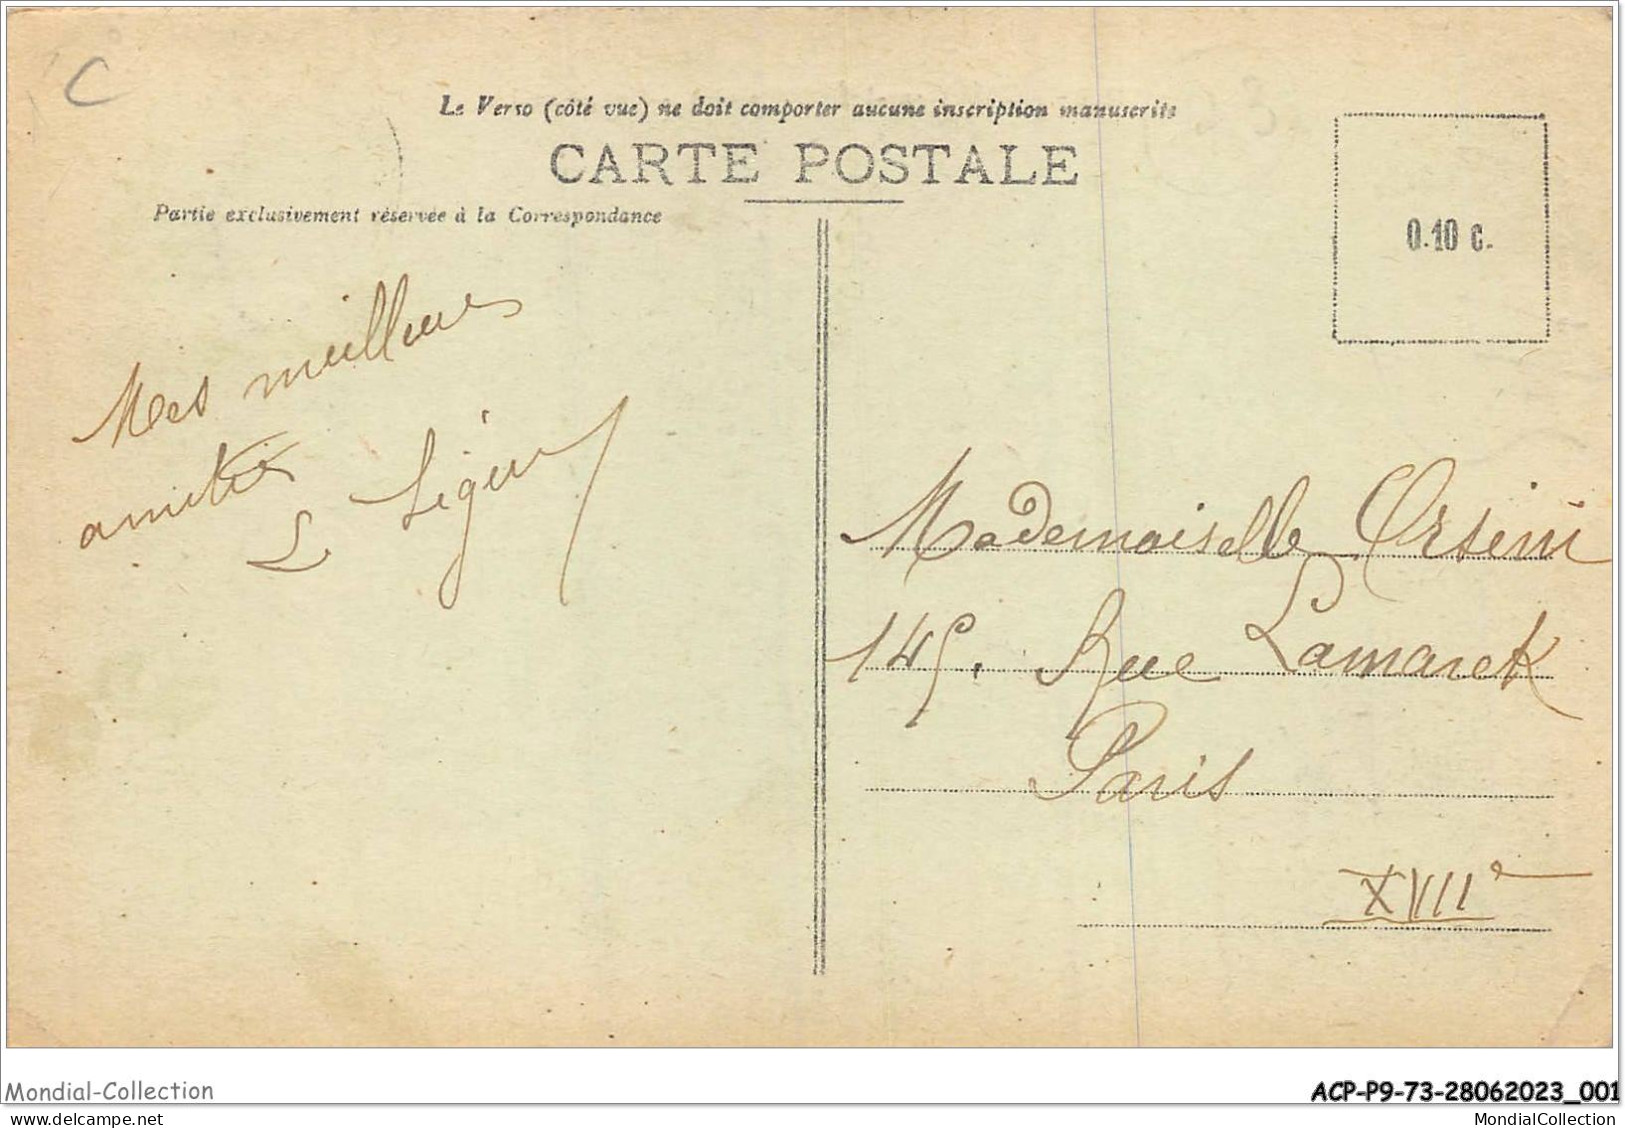 C
Le Verso (côté vue) ne doit comporter aucune inscription manuscrite
CARTE POSTALE
Partie exclusivement réservée à la Correspondance
0.10 c.
Mes meilleures
amitiés
L
Mademoiselle Orsini
145. Rue Lamarck
Paris
XVIIe
Mondial-Collection
ACP-P9-73-28062023_001
MondialCollection